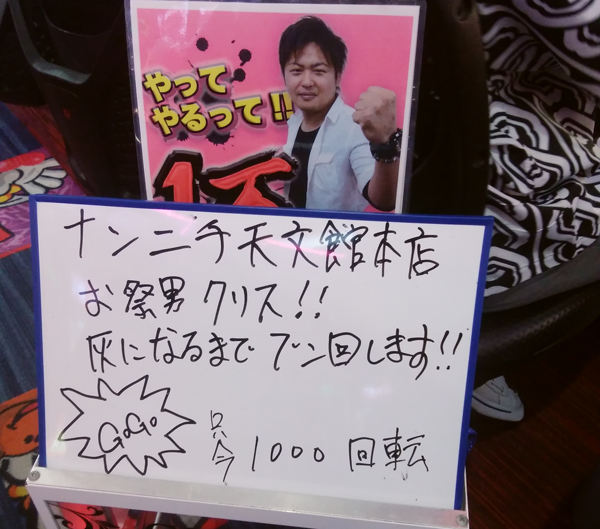 やって
やるって!!
ナンニチ天文館本店
お祭男 クリス!!
灰になるまで ブン回します!!
GoGo
只今 1000 回転